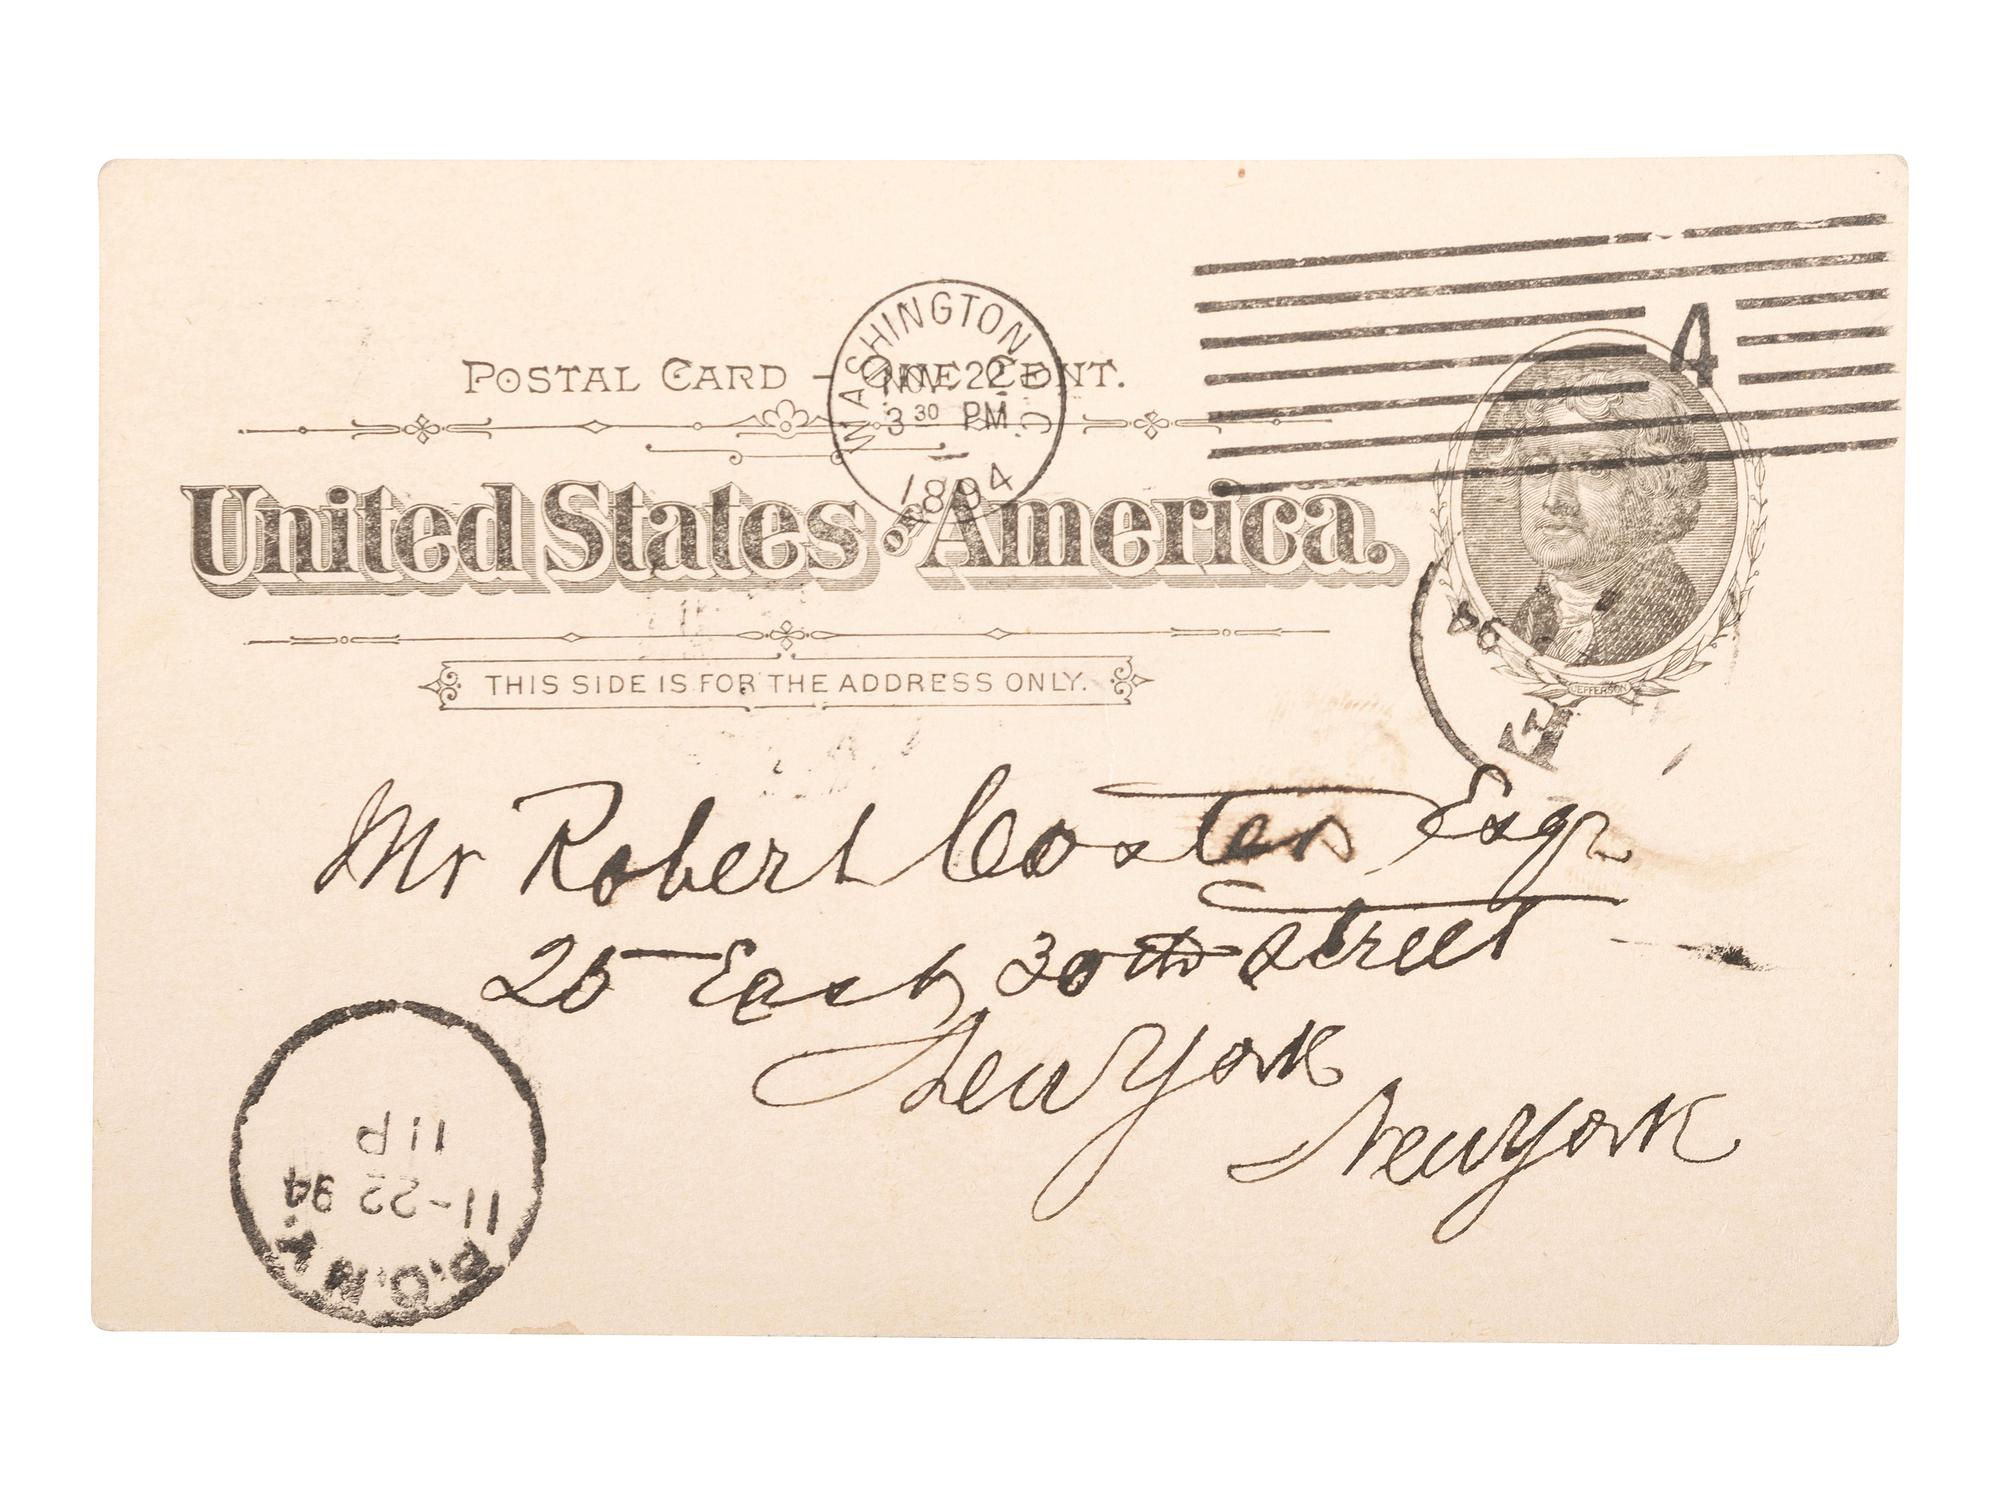 POSTAL CARD - ONE CENT.
WASHINGTON D.C.
NOV 22
3 30 PM
1894
4
United States OF America.
JEFFERSON
THIS SIDE IS FOR THE ADDRESS ONLY.
Mr Robert Coster Esqr
25 East 30th Street
New York
New York
P.O.N.Y.
11-22 94
11 P